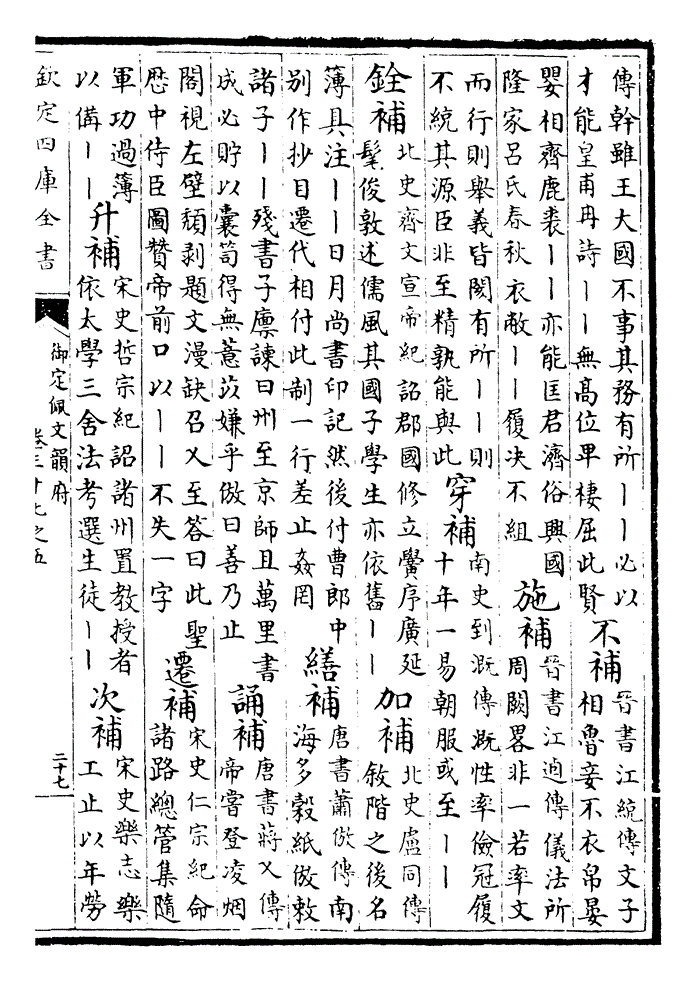 傳幹雖王大國不事其務有所丨丨必以
才能皇甫冉詩丨丨無高位卑棲屈此賢
不補
晉書江統傳文子
相魯妾不衣帛晏
嬰相齊鹿裘丨丨亦能匡君濟俗興國
隆家呂氏春秋衣敝丨丨履决不組
施補
晉書江逌傳儀法所
周闕畧非一若率文
而行則舉義皆闕有所丨丨則
不統其源臣非至精孰能與此
穿補
南史到溉傳溉性率儉冠履
十年一易朝服或至丨丨
銓補
北史齊文宣帝紀詔郡國修立黌序廣延
髦俊敦述儒風其國子學生亦依舊丨丨
加補
北史盧同傳
敘階之後名
薄具注丨丨日月尚書印記然後付曹郎中
別作抄目遷代相付此制一行差止姦罔
繕補
唐書蕭倣傳南
海多穀紙倣敕
諸子丨丨殘書子廪諫曰州至京師且萬里書
成必貯以囊笥得無薏苡嫌乎倣曰善乃止
誦補
唐書蔣乂傳
帝嘗登凌烟
閣視左壁頹剥題文漫缺召乂至答曰此聖
歴中侍臣圖贊帝前口以丨丨不失一字
遷補
宋史仁宗紀命
諸路總管集隨
軍功過薄
以備丨丨
升補
宋史哲宗紀詔諸州置教授者
依太學三舍法考選生徒丨丨
次補
宋史樂志樂
工止以年勞
欽定四庫全書
御定佩文韻府
卷三十七之五
二十七